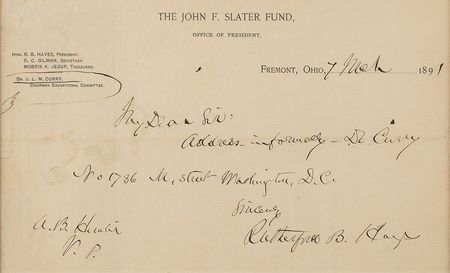 THE JOHN F. SLATER FUND,
OFFICE OF PRESIDENT.
HON. R. B. HAYES, PRESIDENT.
D. C. GILMAN, SECRETARY.
MORRIS K. JESUP, TREASURER.
DR. J. L. M. CURRY,
CHAIRMAN EDUCATIONAL COMMITTEE.
FREMONT, OHIO, 7 Mch 1891
My Dear Sir:
Address informally - Dr. Curry
No 1736 M, street Washington, D.C.
Sincerely
Rutherford B. Hayes
A. B.
V. P.